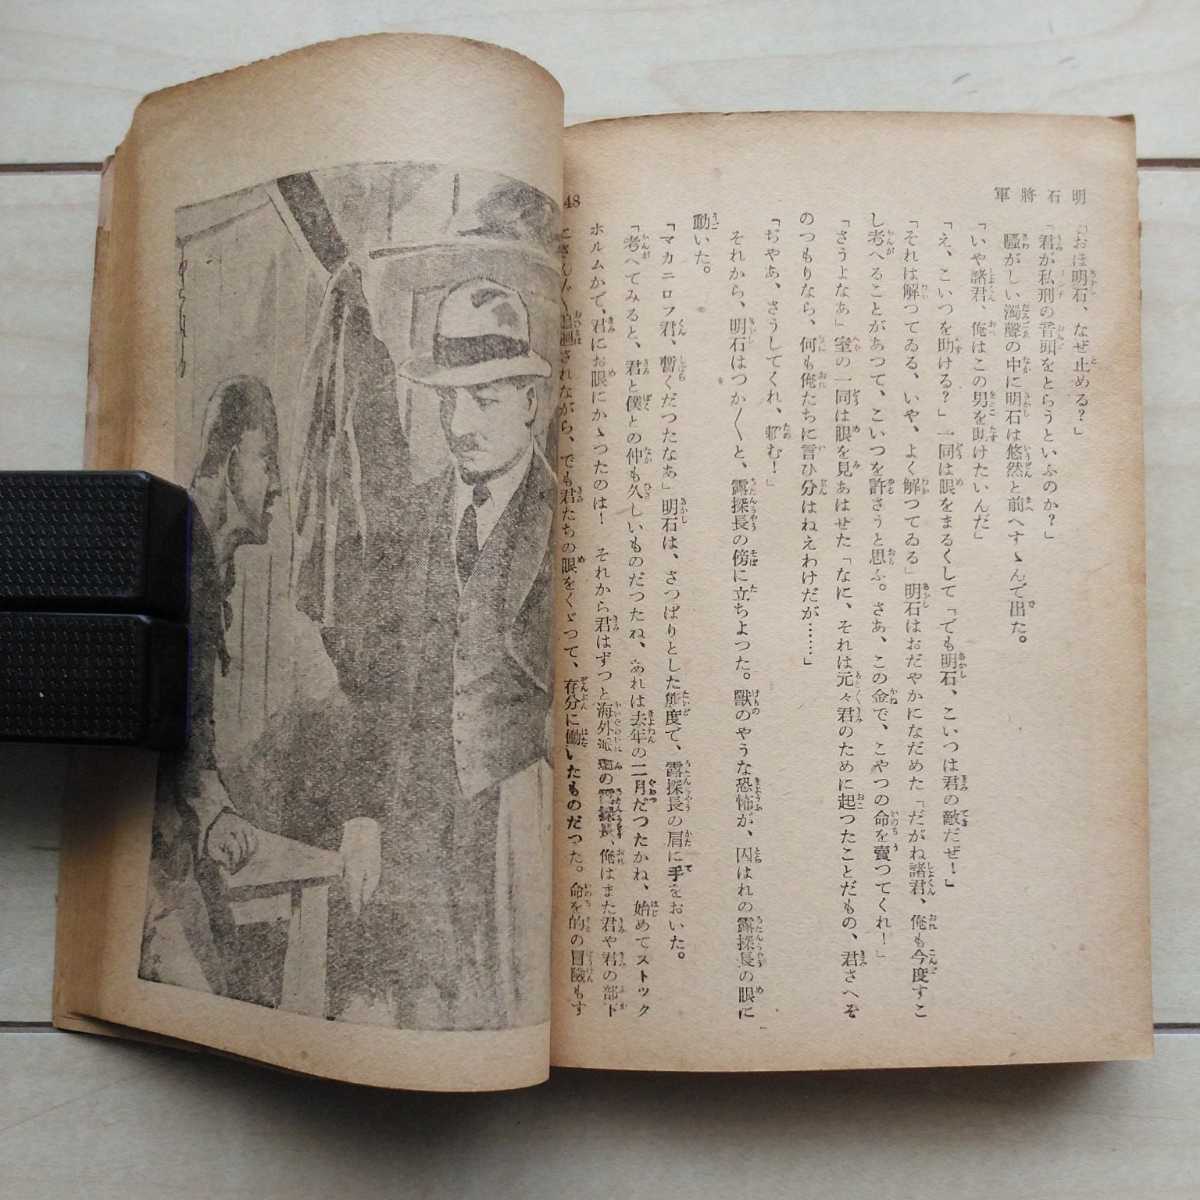 明石將軍
「おほ明石、なぜ止める？」
「君が私刑の音頭をとらうといふのか？」
騷がしい濁聲の中に明石は悠然と前へすゝんで出た。
「いや諸君、俺はこの男を助けたいんだ」
「え、こいつを助ける？」一同は眼をまるくして「でも明石、こいつは君の敵だぜ！」
「それは解つてゐる、いや、よく解つてゐる」明石はおだやかになだめた「だがね諸君、俺も今度すこ
し考へることがあつて、こいつを許さうと思ふ。さあ、この金で、こやつの命を賣つてくれ！」
「さうよなあ」室の一同は眼を見あはせた「なに、それは元々君のために起つたことだもの、君さへそ
のつもりなら、何も俺たちに言ひ分はねえわけだが……」
「ぢやあ、さうしてくれ、頼む！」
それから、明石はつか〱と、露探長の傍に立ちよつた。獸のやうな恐怖が、囚はれの露探長の眼に
動いた。
「マカニロフ君、暫くだつたなあ」明石は、さつぱりとした態度で、露探長の肩に手をおいた。
「考へてみると、君と僕との仲も久しいものだつたね、あれは去年の二月だつたかね、始めてストック
ホルムかで、君にお眼にかゝつたのは！　それから君はずつと海外派の露探長、俺はまた君や君の部下
にさんざく追廻されながら、でも君たちの眼をくゞつて、存分に働いたものだつた。命を的の冒險もす
48